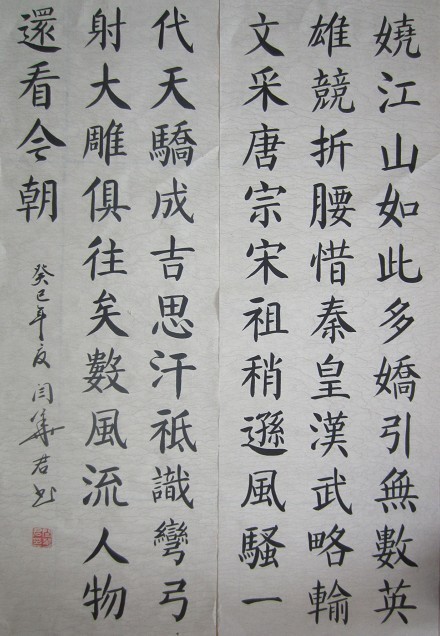 嬈江山如此多嬌引無數英
雄競折腰惜秦皇漢武略輸
文采唐宗宋祖稍遜風騷一
代天驕成吉思汗祗識彎弓
射大雕俱往矣數風流人物
還看今朝
癸巳年夏閆華君书